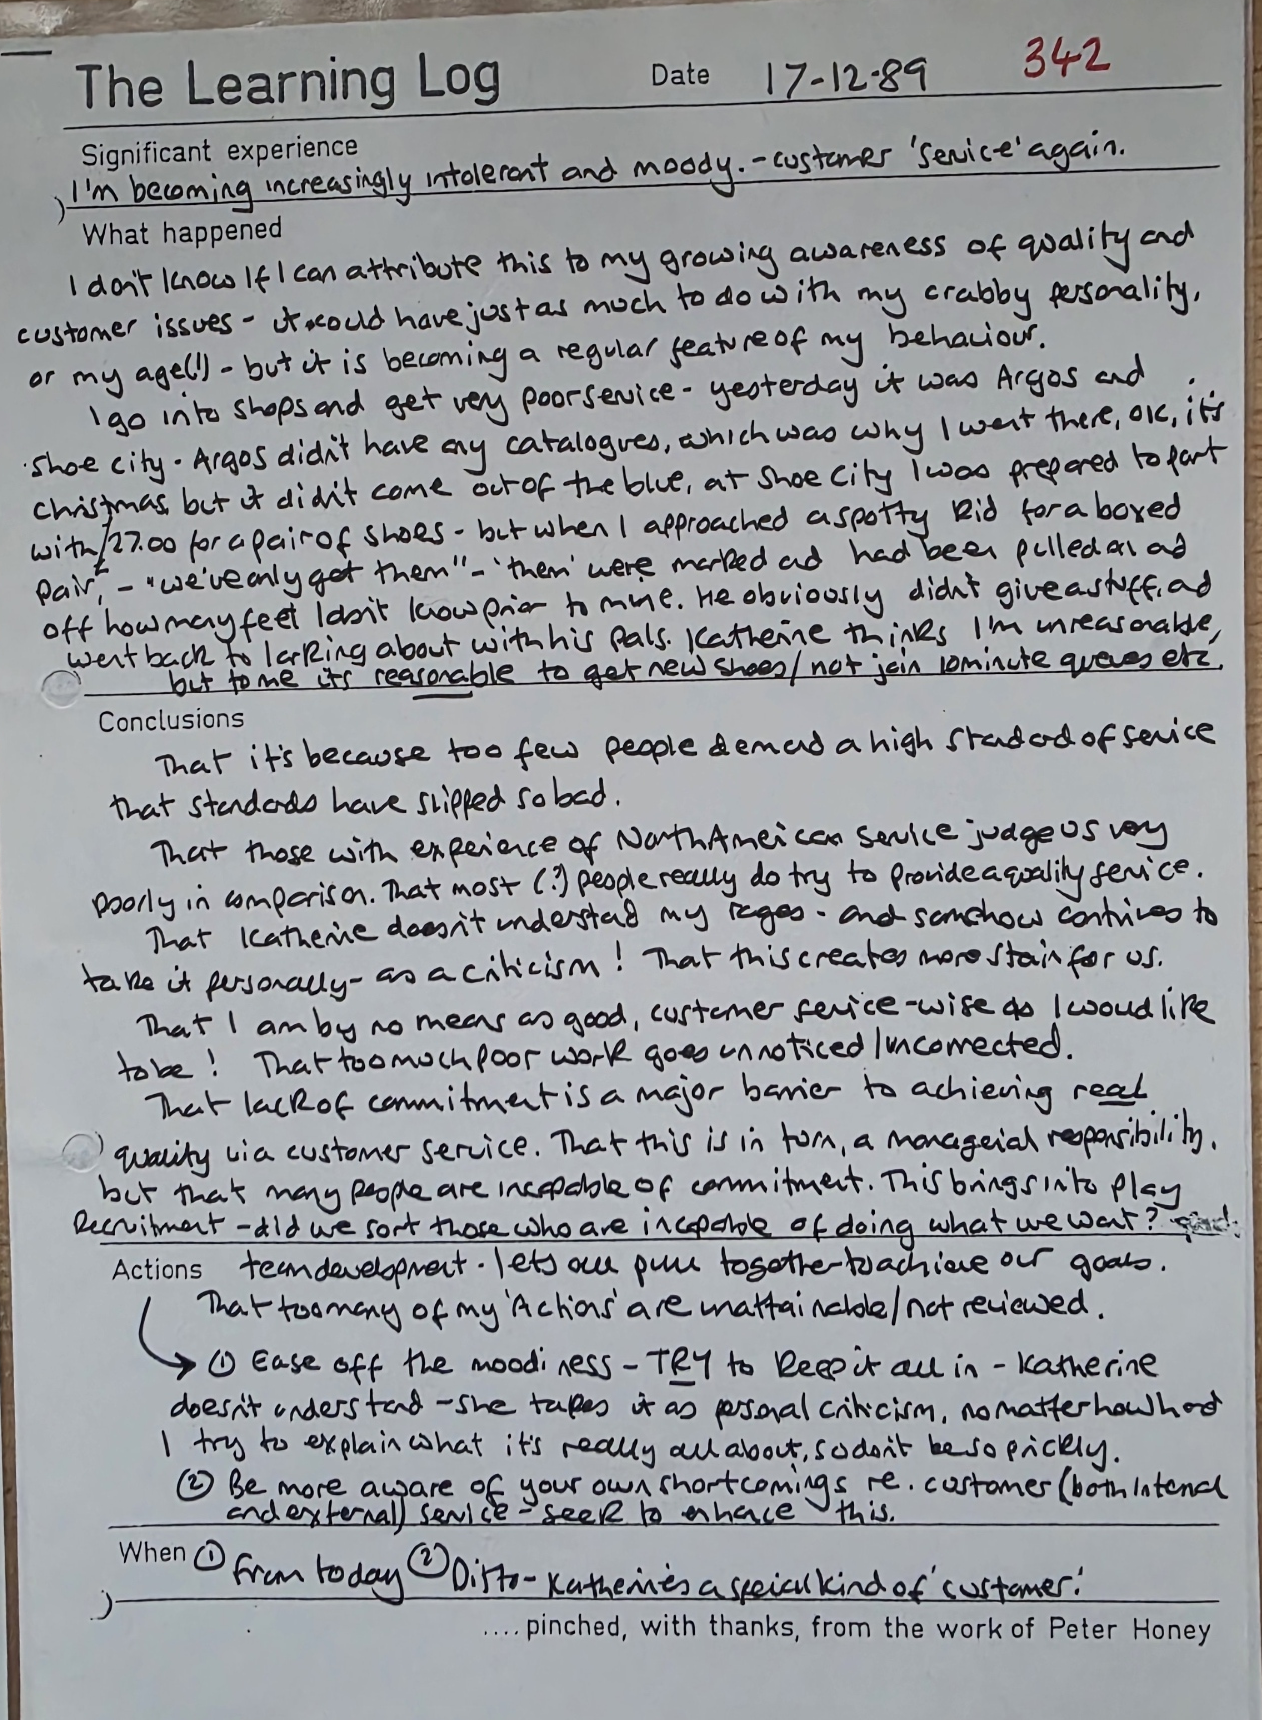 The Learning Log Date 17-12-89 342
Significant experience
I'm becoming increasingly intolerant and moody. - customer 'service' again.
What happened
I don't know if I can attribute this to my growing awareness of quality and
customer issues - it could have just as much to do with my crabby personality,
or my age(!) - but it is becoming a regular feature of my behaviour.
I go into shops and get very poor service - yesterday it was Argos and
Shoe City. Argos didn't have any catalogues, which was why I went there, OK, it's
Christmas, but it didn't come out of the blue, at Shoe City I was prepared to part
with £27.00 for a pair of shoes - but when I approached a spotty kid for a boxed
pair, - "we've only got them" - 'them' were marked and had been pulled on and
off how many feet I don't know prior to mine. He obviously didn't give a stuff, and
went back to larking about with his pals. Katherine thinks I'm unreasonable,
but to me its reasonable to get new shoes/not join 10 minute queues etc.
Conclusions
That it's because too few people demand a high standard of service
that standards have slipped so bad.
That those with experience of North American service judge us very
poorly in comparison. That most (?) people really do try to provide a quality service.
That Katherine doesn't understand my rages - and somehow contrives to
take it personally - as a criticism! That this creates more strain for us.
That I am by no means as good, customer service-wise as I would like
to be! That too much poor work goes unnoticed/uncorrected.
That lack of commitment is a major barrier to achieving real
quality via customer service. That this is in turn, a managerial responsibility,
but that many people are incapable of commitment. This brings into play
Recruitment - did we sort those who are incapable of doing what we want?
Actions team development - lets all pull together to achieve our goals.
That too many of my 'Actions' are unattainable/not reviewed.
① Ease off the moodiness - TRY to keep it all in - Katherine
doesn't understand - she takes it as personal criticism, no matter how hard
I try to explain what it's really all about, so don't be so prickly.
② Be more aware of your own shortcomings re. customer (both internal
and external) service - seek to enhance this.
When ① From today ② Ditto - Katherine's a special kind of 'customer'.
.... pinched, with thanks, from the work of Peter Honey